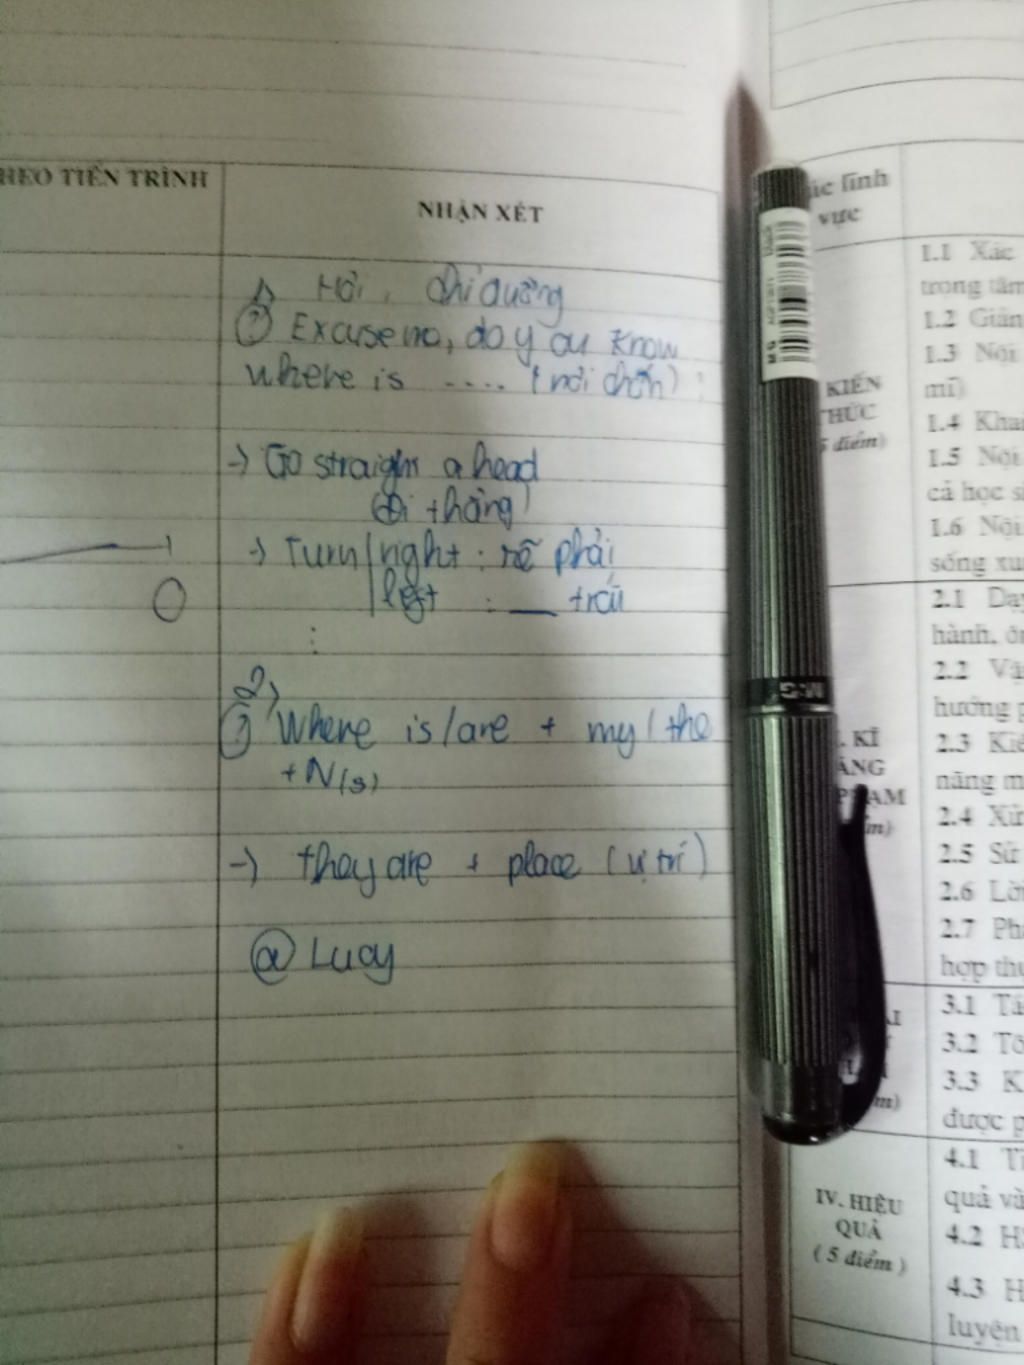 HEO TIẾN TRÌNH
NHẬN XÉT
1, Hỏi, chỉ đường
(?) Excuse me, do you know
where is .... (nơi chốn) ?
-> Go straigh ahead
(đi thẳng)
-> Turn | right : rẽ phải
| left : __ trái
:
2,
(?) Where is / are + my / the
+ N(s)
-> they are + place (vị trí)
@ Lucy
lĩnh
vực
KIẾN
THỨC
5 điểm)
. KĨ
ĂNG
PHẠM
M&G
IV. HIỆU
QUẢ
( 5 điểm )
1.1 Xác
trọng tâm
1.2 Giản
1.3 Nội
mĩ)
1.4 Khai
1.5 Nội
cả học s
1.6 Nội
sống xu
2.1 Dạy
hành, ôn
2.2 Vậ
hướng p
2.3 Kiể
năng m
2.4 Xử
2.5 Sử
2.6 Lời
2.7 Ph
hợp thu
3.1 Tá
3.2 Tô
3.3 K
được p
4.1 Ti
quả và
4.2 H
4.3 H
luyện